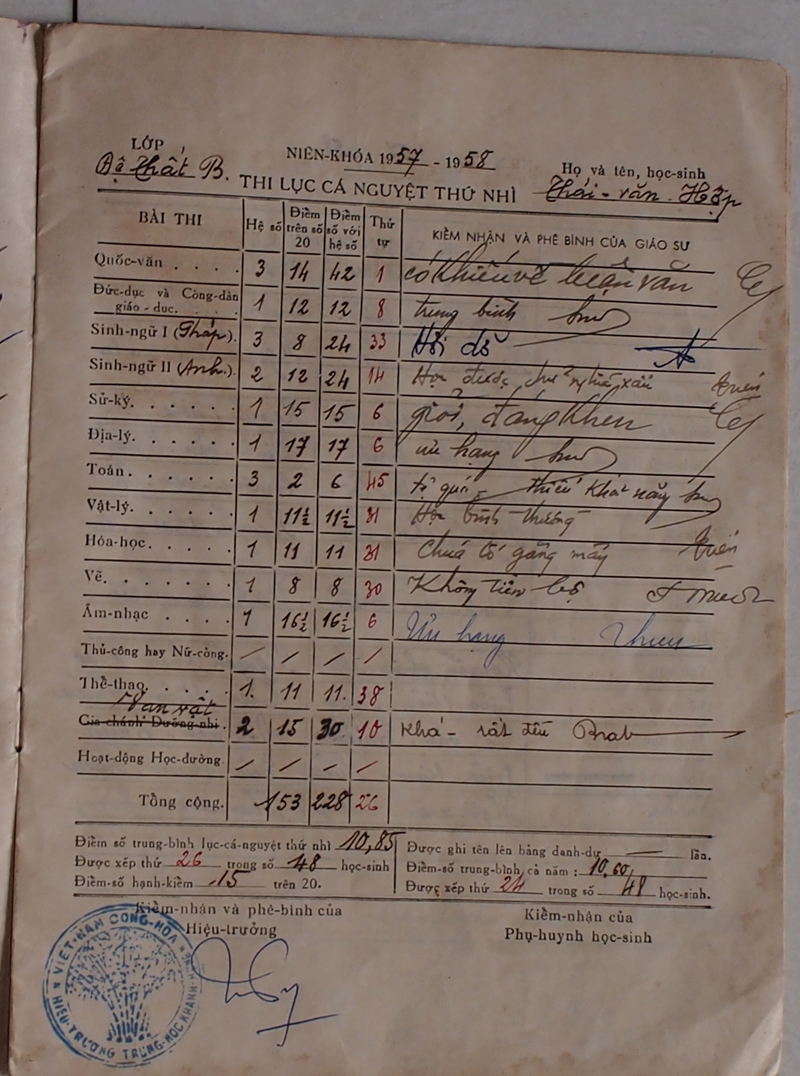 LỚP
Đệ thất B.
NIÊN-KHÓA 1957 - 1958
Họ và tên, học-sinh
Thái-văn-Hợp
THI LỤC CÁ NGUYỆT THỨ NHÌ
BÀI THI | Hệ số | Điểm trên số 20 | Điểm số với hệ số | Thứ tự | KIỂM NHẬN VÀ PHÊ BÌNH CỦA GIÁO SƯ
Quốc-văn . . . . | 3 | 14 | 42 | 1 | có khiếu về luận văn
Đức-dục và Công-dân giáo-dục. . . . . | 1 | 12 | 12 | 8 | trung bình
Sinh-ngữ I (Pháp). | 3 | 8 | 24 | 33 | Hơi dở
Sinh-ngữ II (Anh.). | 2 | 12 | 24 | 14 | Học được, chữ nghĩa xấu
Sử-ký. . . . . . | 1 | 15 | 15 | 6 | giỏi, đáng khen
Địa-lý. . . . . . | 1 | 17 | 17 | 6 | ưu hạng
Toán . . . . . . | 3 | 2 | 6 | 45 | tệ quá, thiếu khả năng
Vật-lý. . . . . . | 1 | 11½ | 11½ | 31 | Học bình thường
Hóa-học. . . . . | 1 | 11 | 11 | 31 | Chưa cố gắng mấy
Vẽ. . . . . . . | 1 | 8 | 8 | 30 | Không tiến bộ
Âm-nhạc . . . . | 1 | 16½ | 16½ | 6 | Ưu hạng
Thủ-công hay Nữ-công. | / | / | / | /
Thể-thao. . . . . | 1. | 11 | 11. | 38
Vạn vật
Gia-chánh Dưỡng-nhi . | 2 | 15 | 30 | 10 | Khá - rất đều
Hoạt-động Học-đường. | / | / | / | /
Tổng cộng. | 153 | 228 | 26
Điểm số trung-bình lục-cá-nguyệt thứ nhì 10,85
Được xếp thứ 26 trong số 48 học-sinh
Điểm-số hạnh-kiểm 15 trên 20.
Được ghi tên lên bảng danh-dự — lần.
Điểm-số trung-bình cả năm : 10,60,
Được xếp thứ 24 trong số 48 học-sinh.
Kiểm-nhận và phê-bình của
Hiệu-trưởng
Kiểm-nhận của
Phụ-huynh học-sinh
VIỆT-NAM CỘNG-HÒA
HIỆU-TRƯỞNG TRUNG-HỌC KHÁNH